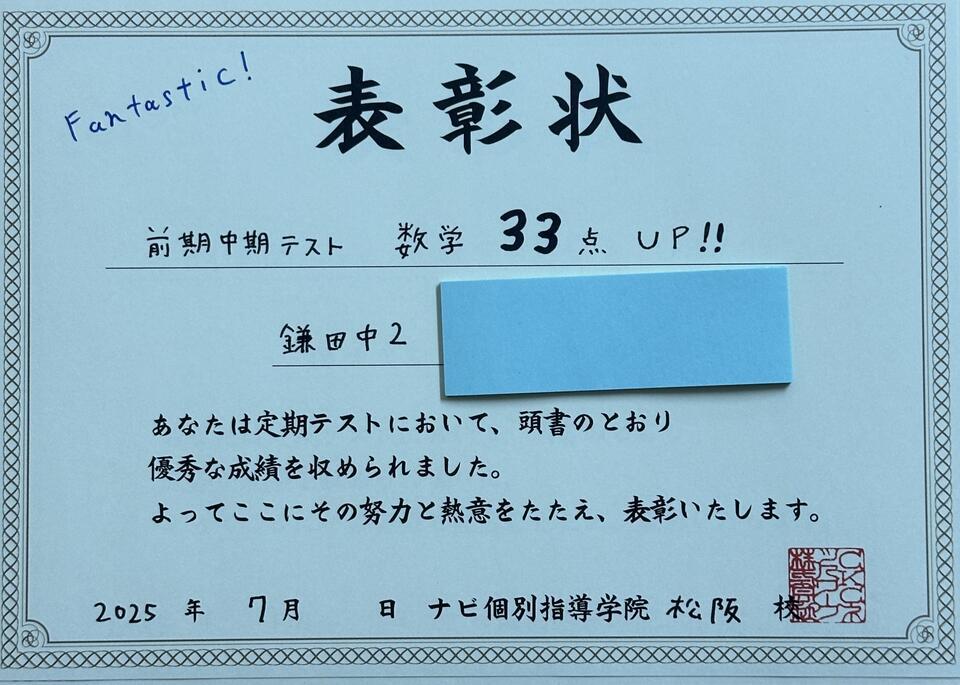 Fantastic!
表彰状
前期中期テスト 数学 33点 UP!!
鎌田中2
あなたは定期テストにおいて、頭書のとおり
優秀な成績を収められました。
よってここにその努力と熱意をたたえ、表彰いたします。
2025 年 7月 日 ナビ個別指導学院 松阪 校